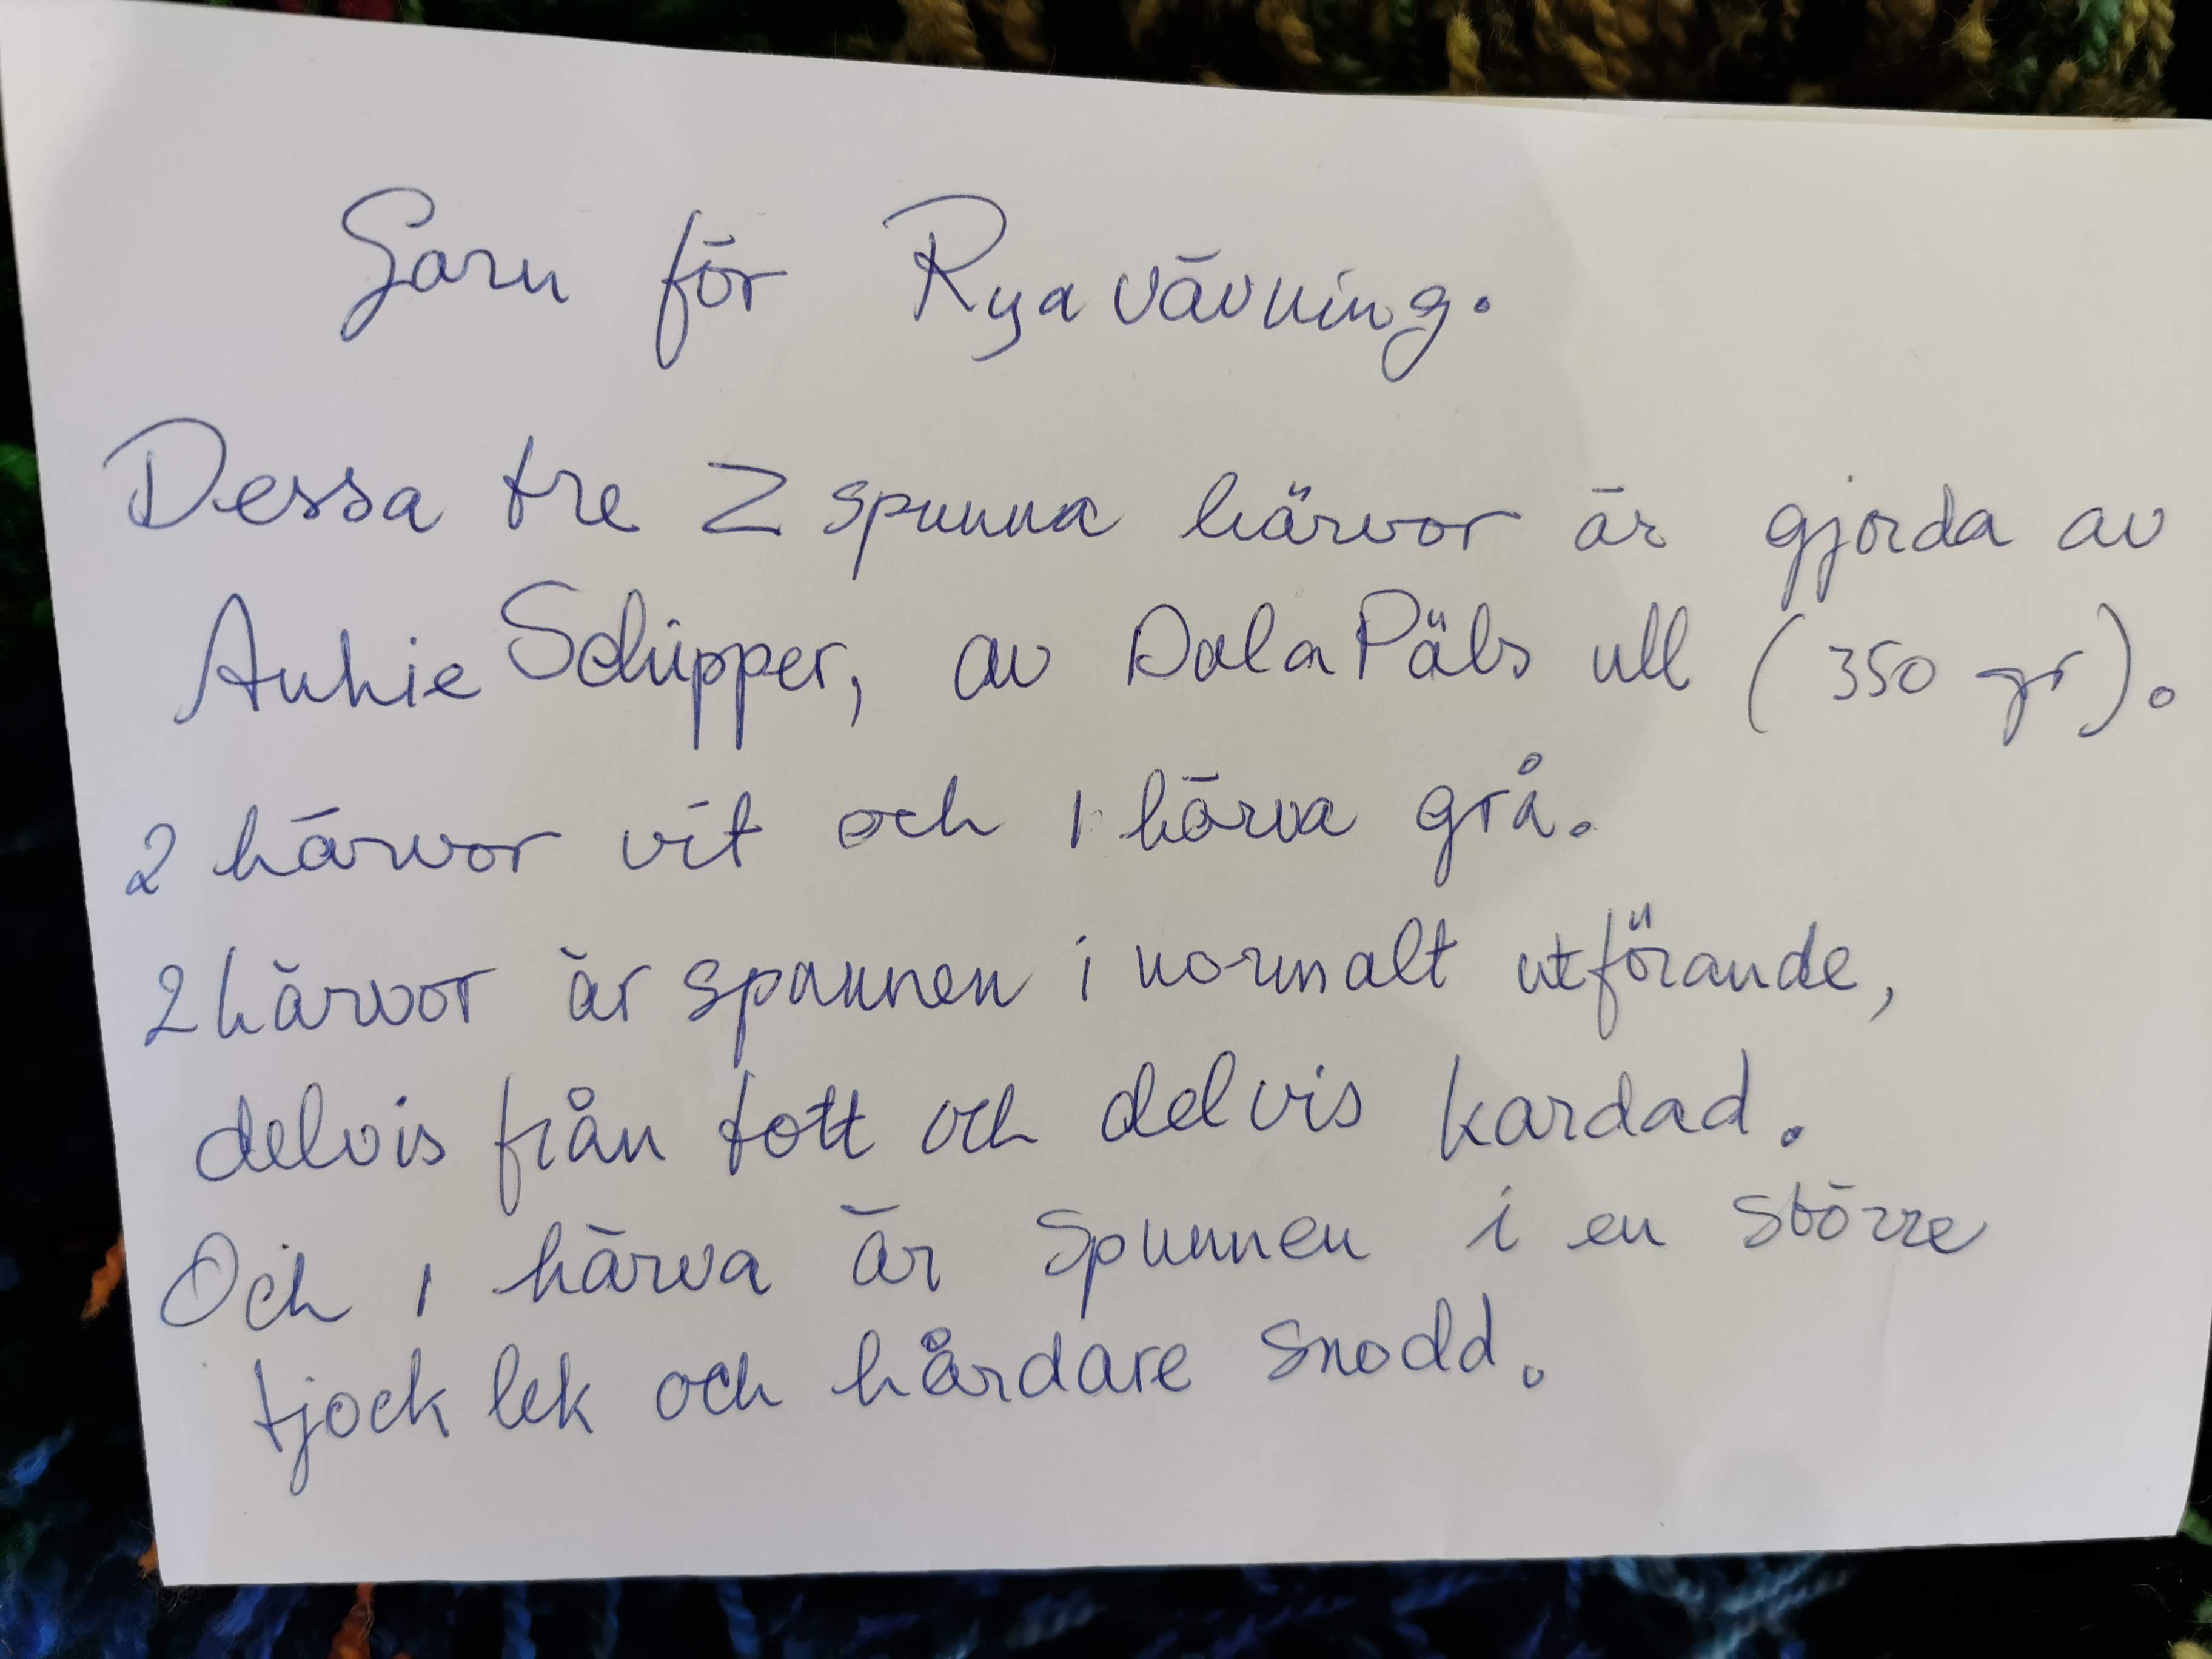 Garn för Rya vävning.
Dessa tre Z spunna härvor är gjorda av
Ankie Schipper, av Dala Päls ull (350 gr).
2 härvor vit och 1 härva grå.
2 härvor är spunnen i normalt utförande,
delvis från tott och delvis kardad.
Och 1 härva är spunnen i en större
tjock lek och hårdare snodd.